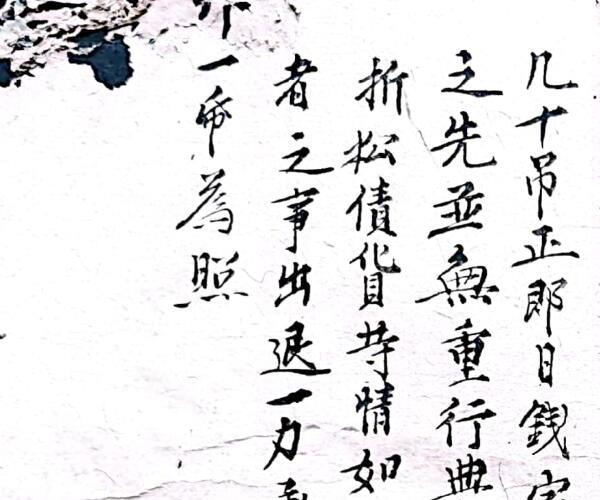 几十吊正郎日錢
之先並無重行典
折松債貨等情如
者之事出退一力
一帋為照